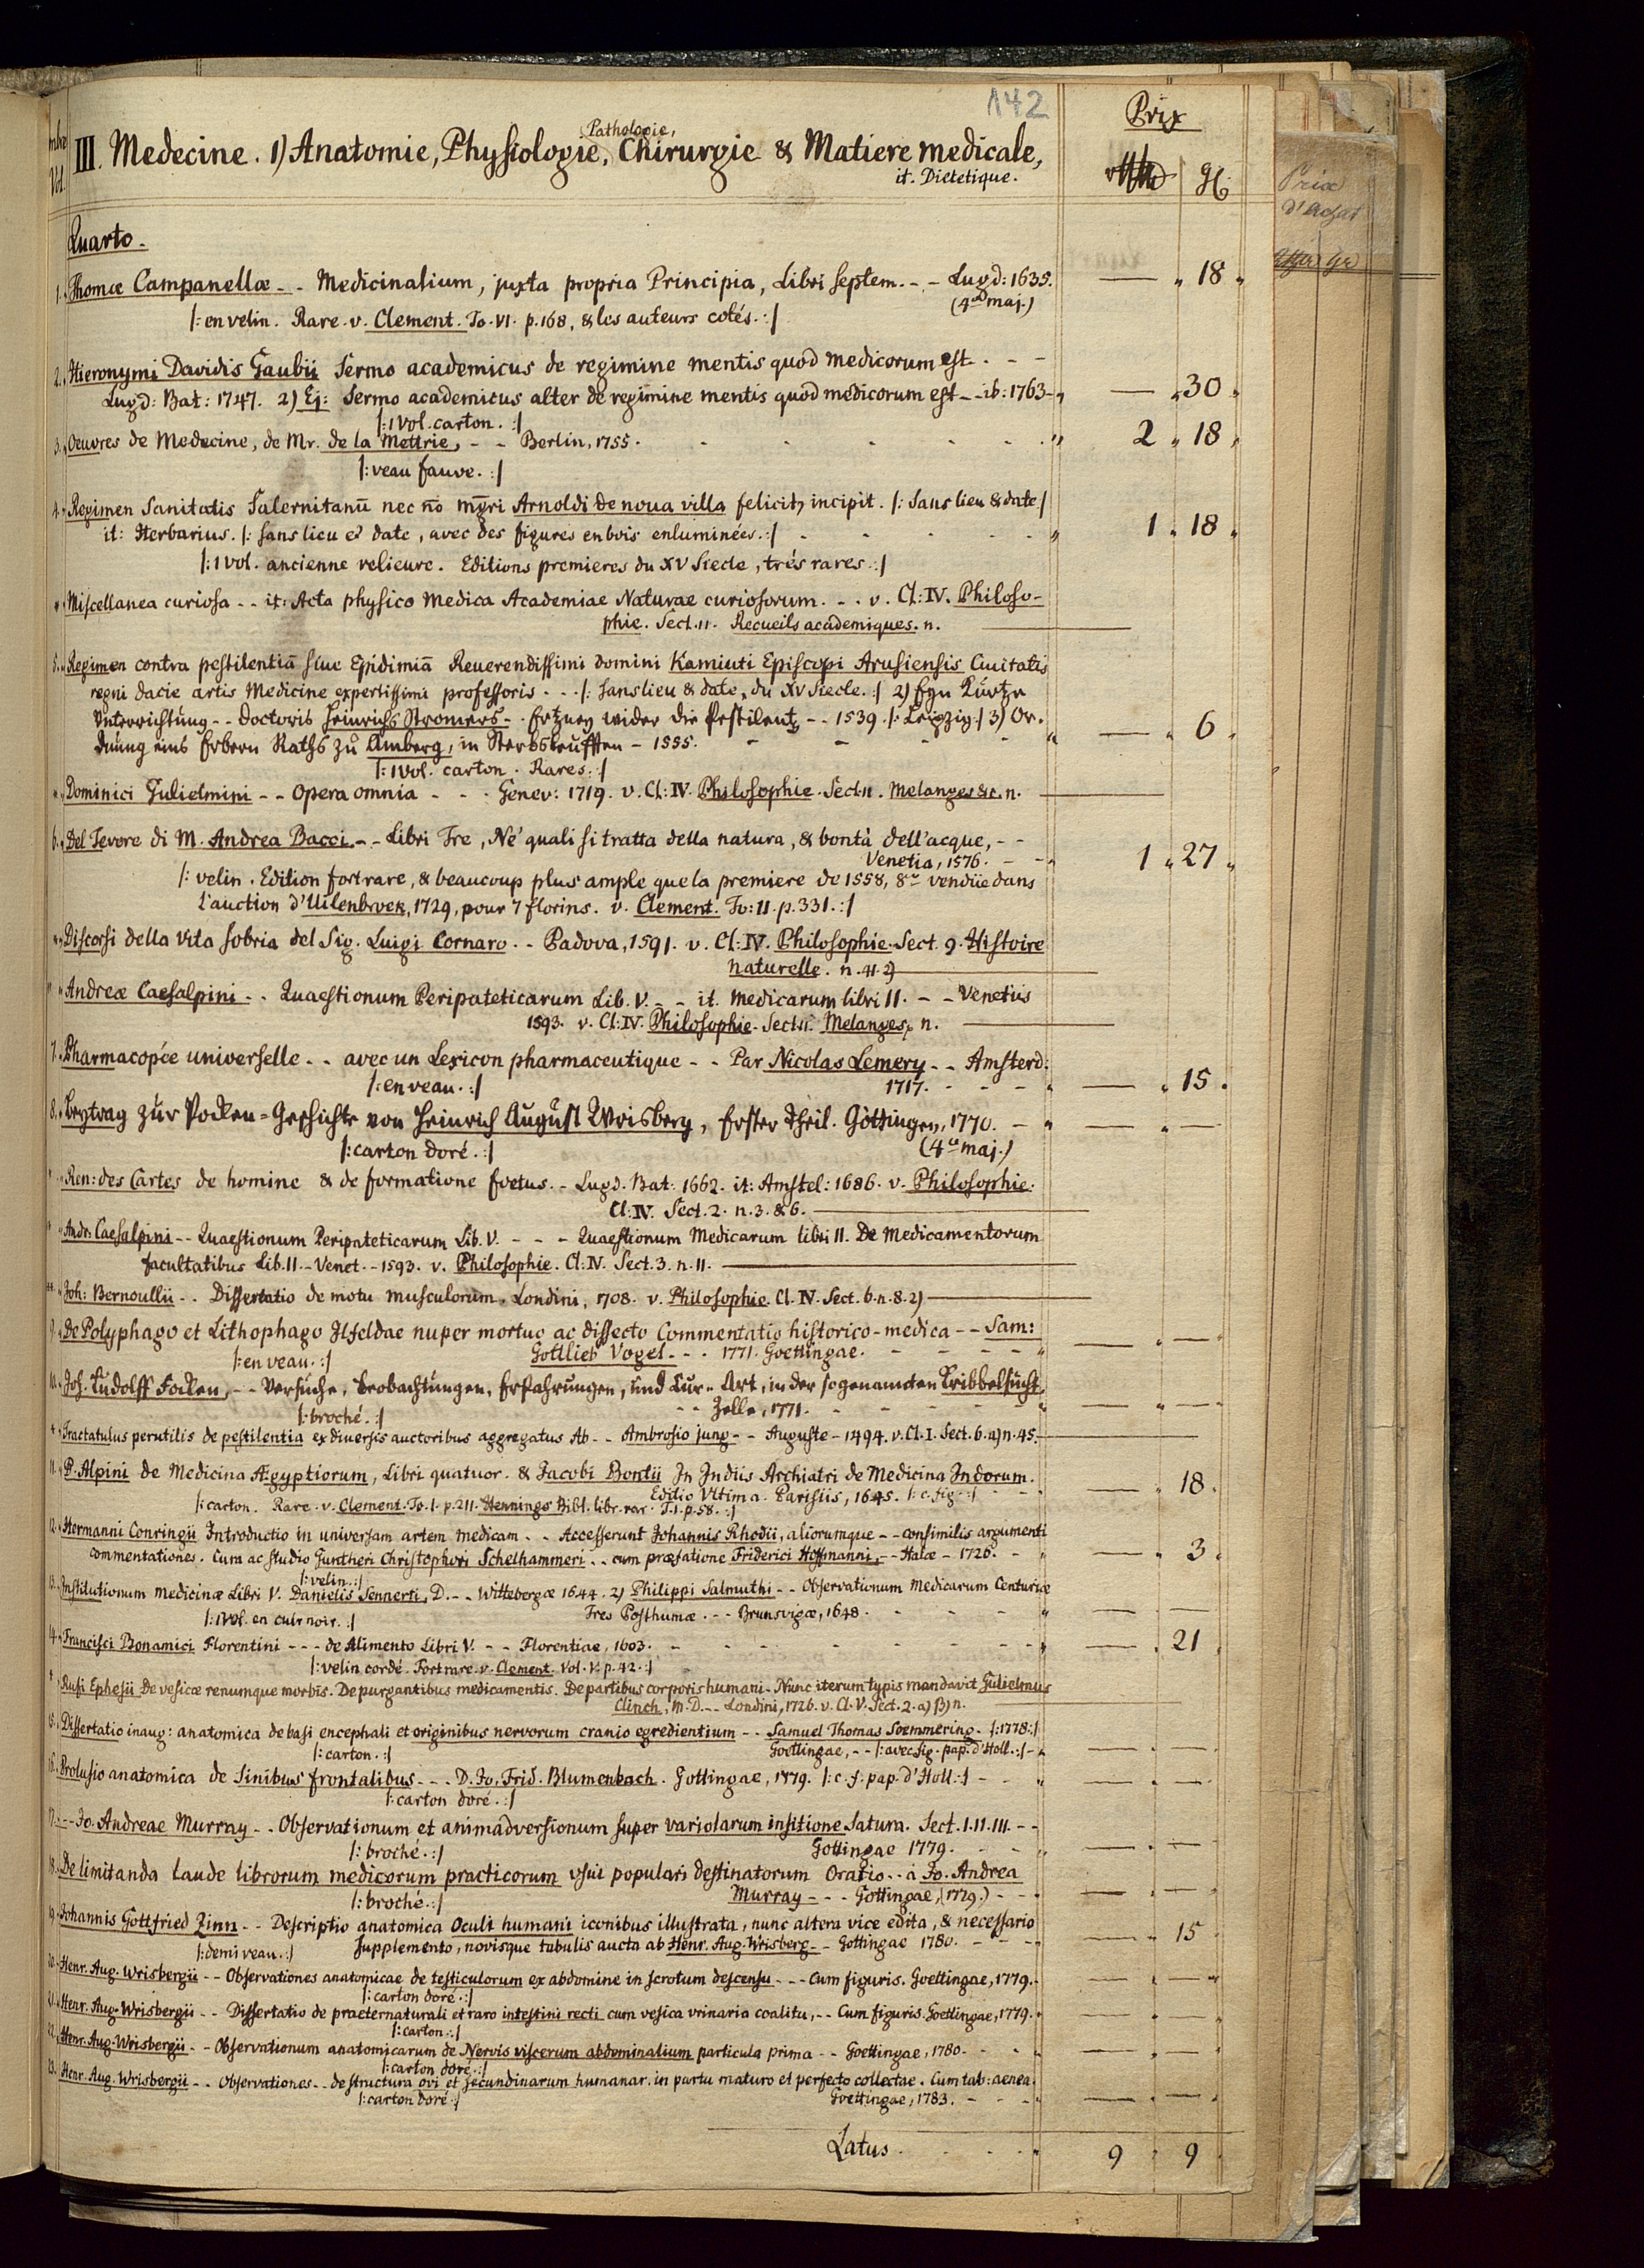 142
Prix
Pathologie,
III. Medecine. 1) Anatomie, Physiologie, Chirurgie & Matiere medicale,
it. Dietetique.
Vol.
Prix
d'achat
Quarto.
1. Thomæ Campanellæ - - Medicinalium, juxta propria Principia, Libri septem. - - Lugd: 1635. — 18
(4to maj.)
/: en velin. Rare. v. Clement. To. VI. p. 168, & les auteurs cotés. :/
2. Hieronymi Davidis Gaubii Sermo academicus de regimine mentis quod medicorum est. - -
Lugd: Bat: 1747. 2) Ej: Sermo academicus alter de regimine mentis quod medicorum est - - ib: 1763 - — 30
/: 1 Vol. carton. :/
3. Oeuvres de Medecine, de Mr. de la Mettrie, - - Berlin, 1755. 2 18
/: veau fauve. :/
4. Regimen Sanitatis Salernitanū nec nō mgri Arnoldi de noua villa felicit, incipit. /: Sans lieu & date /
it: Herbarius. /: sans lieu & date, avec des figures en bois enluminées. :/ 1 18
/: 1 vol. ancienne relieure. Editions premieres du XV Siecle, trés rares. :/
Miscellanea curiosa - - it: Acta physico Medica Academiae Naturae curiosorum. - - v. Cl: IV. Philoso-
phie. Sect. 11. Recueils academiques. n. —
5. Regimen contra pestilentiā siue Epidimiā Reuerendissimi domini Kamiuti Episcopi Arusiensis Ciuitatis
regni dacie artis Medicine expertissimi professoris - - - /: sans lieu & date, du XV Siecle. :/ 2) Eyn Kürtze
Vnterrichtung - - Doctoris Heinrichs Stromers - . Ertzney wider die Pestilentz - - 1539. /: Leipzig :/ 3) Or-
dnung eins Erbern Raths zu Amberg, in Sterbsleufften - 1555. — 6
/: 1 Vol. carton. Rares. :/
Dominici Gulielmini - - Opera omnia - - - Genev: 1719. v. Cl: IV. Philosophie. Sect. 11. Melanges &c. n. —
6. Del Tevere di M. Andrea Bacci. - - Libri Tre, Né quali si tratta della natura, & bontà dell'acque, - -
Venetia, 1576. - - 1 27
/: velin. Edition fort rare, & beaucoup plus ample que la premiere de 1558, 8vo vendüe dans
l'auction d'Uilenbroek, 1729, pour 7 florins. v. Clement. To: II. p. 331. :/
Discorsi della Vita sobria del Sig. Luigi Cornaro - - Padova, 1591. v. Cl: IV. Philosophie. Sect. 9. Histoire
naturelle. n. 41. 2) —
Andreæ Caesalpini - - Quaestionum Peripateticarum Lib. V. - - it. medicarum libri II. - - Venetiis
1593. v. Cl: IV. Philosophie. Sect. 11. Melanges, n. —
7. Pharmacopée universelle - - avec un Lexicon pharmaceutique - - Par Nicolas Lemery - - Amsterd:
/: en veau. :/ 1717. — 15
8. Beytrag zur Pocken-Geschichte von Heinrich August Wrisberg, Erster Theil. Göttingen, 1770. - — —
/: carton doré. :/ (4to maj.)
Ren: des Cartes de homine & de formatione foetus. - Lugd. Bat: 1662. it: Amstel: 1686. v. Philosophie.
Cl: IV. Sect. 2. n. 3. & 6. —
Andr: Caesalpini - - Quaestionum Peripateticarum Lib. V. - - - Quaestionum Medicarum libri II. De Medicamentorum
facultatibus Lib. II. - Venet. - 1593. v. Philosophie. Cl: IV. Sect. 3. n. 11. —
Joh: Bernoullii - - Dissertatio de motu musculorum. Londini, 1708. v. Philosophie. Cl. IV. Sect. 6. n. 8. 2) —
9. De Polyphago et Lithophago Ilfeldae nuper mortuo ac dissecto Commentatio historico-medica - - Sam:
/: en veau. :/ Gottlieb Vogel - - - 1771. Goettingae. — —
10. Joh. Rudolff Focken, - - Versuche, Beobachtungen, Erfahrungen, und Cur-Art, in der sogenannten Kribbelsucht,
/: broché. :/ - - Zelle, 1771. — —
Tractatulus perutilis de pestilentia ex diuersis auctoribus aggregatus Ab - - Ambrosio jung - - Auguste - 1494. v. Cl. I. Sect. 6. a) n. 45. —
11. P. Alpini de Medicina Ægyptiorum, Libri quatuor. & Jacobi Bontii In Indiis Archiatri de Medicina Indorum.
Editio Vltima. Parisiis, 1645. /: c. fig. :/ — 18
/: carton. Rare. v. Clement. To. I. p. 211. Hennings Bibl. libr. rar. T. I. p. 58. :/
12. Hermanni Conringii Introductio in universam artem medicam. - - Accesserunt Johannis Rhodii, aliorumque - - consimilis argumenti
commentationes. Cum ac studio Guntheri Christophori Schelhammeri - - cum præfatione Friderici Hoffmanni, - - Halæ - 1726. — 3
/: velin. :/
13. Institutionum medicinæ Libri V. Danielis Sennerti, D. - - Wittebergæ 1644. 2) Philippi Salmuthi - - Observationum Medicarum Centuriæ
/: 1 Vol. en cuir noir. :/ Tres Posthumæ. - - Brunsvigæ, 1648. — —
14. Francisci Bonamici Florentini - - - de Alimento Libri V. - - Florentiae, 1603. — 21
/: velin cordé. Fort rare. v. Clement. Vol. V. p. 42. :/
Rufi Ephesii De vesicæ renumque morbis. De purgantibus medicamentis. De partibus corporis humani. Nunc iterum typis mandavit Gulielmus
Clinch, M. D. - - Londini, 1726. v. Cl. V. Sect. 2. a) β) n. —
15. Dissertatio inaug: anatomica de basi encephali et originibus nervorum cranio egredientium - - Samuel Thomas Soemmering. /: 1778 :/
/: carton. :/ Goettingae, - - /: avec fig. pap. d'Holl. :/ — —
16. Prolusio anatomica de Sinibus frontalibus - - - D. Jo. Frid. Blumenbach. Gottingae, 1779. /: c. f: pap. d'Holl. :/ — —
/: carton doré. :/
17. - - Jo. Andreae Murray - - Observationum et animadversionum super variolarum insitione Satura. Sect. I. II. III. - -
/: broché. :/ Gottingae 1779. — —
18. De limitanda laude librorum medicorum practicorum vsui populari destinatorum Oratio - - à Jo. Andrea
/: broché. :/ Murray - - - Gottingae, (1779.) — —
19. Johannis Gottfried Zinn - - Descriptio anatomica Oculi humani iconibus illustrata, nunc altera vice edita, & necessario
/: demi veau. :/ Supplemento, novisque tabulis aucta ab Henr. Aug. Wrisberg - - Gottingae 1780. — 15
20. Henr. Aug. Wrisbergii - - Observationes anatomicae de testiculorum ex abdomine in scrotum descensu - - - Cum figuris. Goettingae, 1779. — —
/: carton doré. :/
21. Henr. Aug. Wrisbergii - - Dissertatio de praeternaturali et raro intestini recti cum vesica vrinaria coalitu, - - Cum figuris. Goettingae, 1779. — —
/: carton. :/
22. Henr. Aug. Wrisbergii - - Observationum anatomicarum de Nervis viscerum abdominalium particula prima - - Goettingae, 1780. — —
/: carton doré. :/
23. Henr. Aug. Wrisbergii - - Observationes - - de structura ovi et secundinarum humanar. in partu maturo et perfecto collectae. Cum tab: aenea.
/: carton doré. :/ Goettingae, 1783. — —
Latus. 9 9